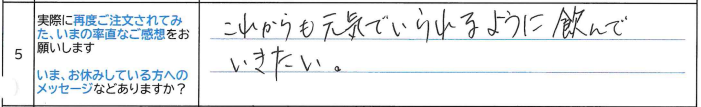 5
実際に再度ご注文されてみ
た、いまの率直なご感想をお
願いします
いま、お休みしている方への
メッセージなどありますか？
これからも元気でいられるように飲んで
いきたい。